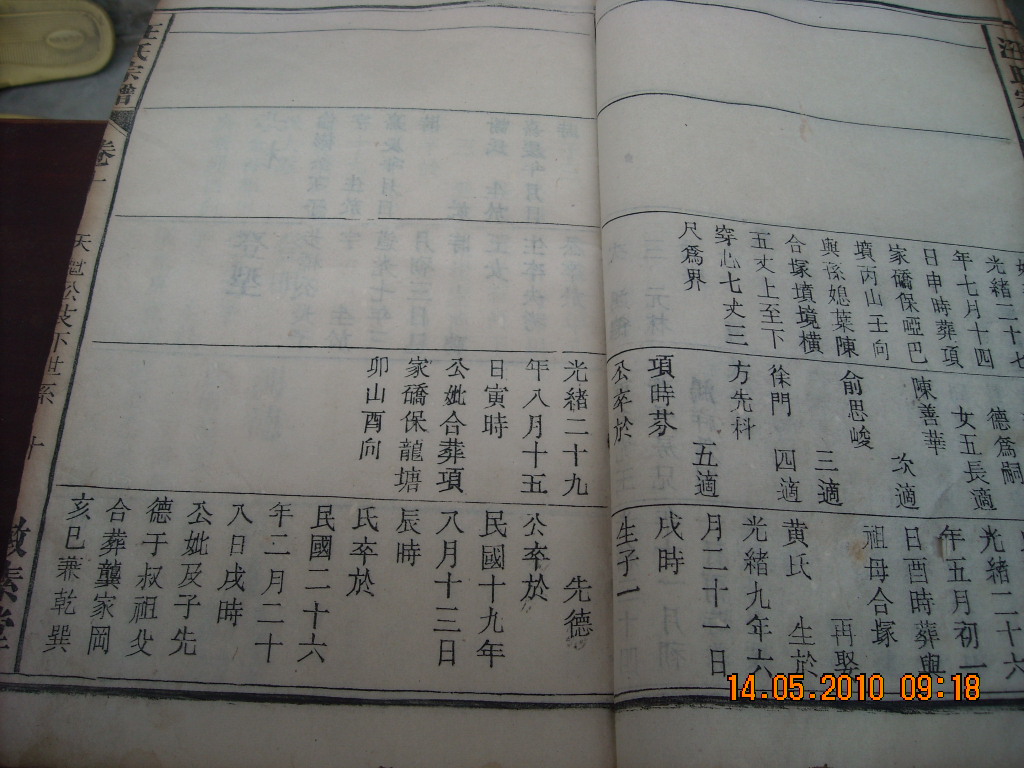 汪氏宗
光緒二十七
年七月十四
日申時葬項
家礄保啞巴
墳丙山壬向
與孫媳葉陳
合塚墳境橫
五丈上至下
穿心七丈三
尺爲界
德爲嗣
女五長適
陳善華
次適
俞思峻
三適
徐門 四適
方先科
五適
項時芬
公卒於
光緒二十九
年八月十五
日寅時
公妣合葬項
家礄保龍塘
卯山酉向
光緒二十六
年五月初一
日酉時葬與
祖母合塚
再娶
黄氏 生於
光緒九年六
月二十一日
戌時
生子一
先德
公卒於
民國十九年
八月十三日
辰時
氏卒於
民國二十六
年二月二十
八日戌時
公妣及子先
德于叔祖父
合葬龔家岡
亥巳兼乾巽
汪氏宗譜
卷一
公支下世系
十
14.05.2010 09:18